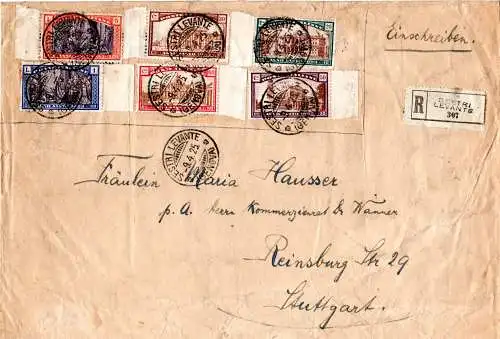 Einschreiben.
R
SESTRI
LEVANTE
307
SESTRI LEVANTE
-9.4.25
Fräulein Maria Hausser
p. A. Herrn Kommerzienrat Dr Wanner
Reinsburg Str 29
Stuttgart.